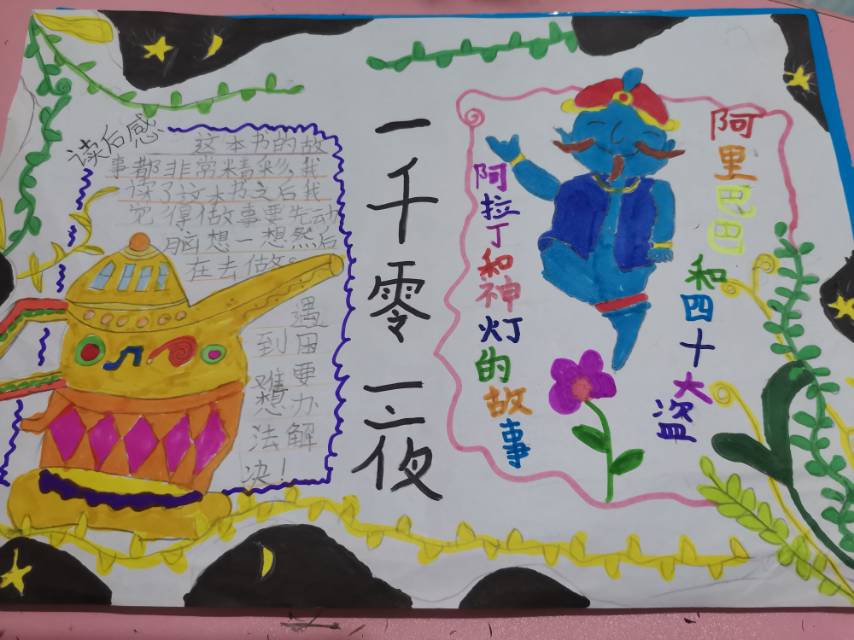 读后感
这本书的故
事都非常精彩，我
读了这本书之后我
觉得做事要先动
脑想一想然后
在去做。
遇
到困
难要
想办
法解
决！
一千零一夜
阿拉丁和神灯的故事
阿里巴巴
和四十大盗